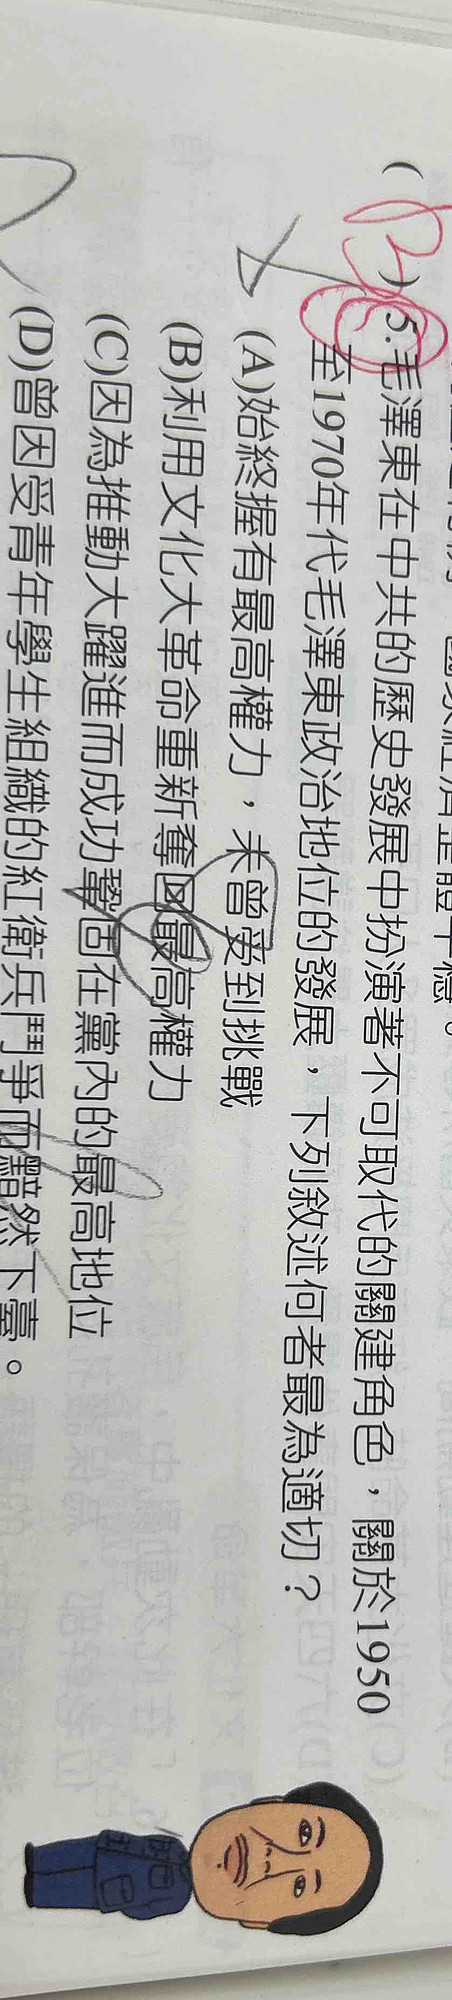 國家經濟整體平穩。
(B)5.毛澤東在中共的歷史發展中扮演著不可取代的關建角色，關於1950
至1970年代毛澤東政治地位的發展，下列敘述何者最為適切？
(A)始終握有最高權力，未曾受到挑戰
(B)利用文化大革命重新奪回最高權力
(C)因為推動大躍進而成功鞏固在黨內的最高地位
(D)曾因受青年學生組織的紅衛兵鬥爭而黯然下臺。